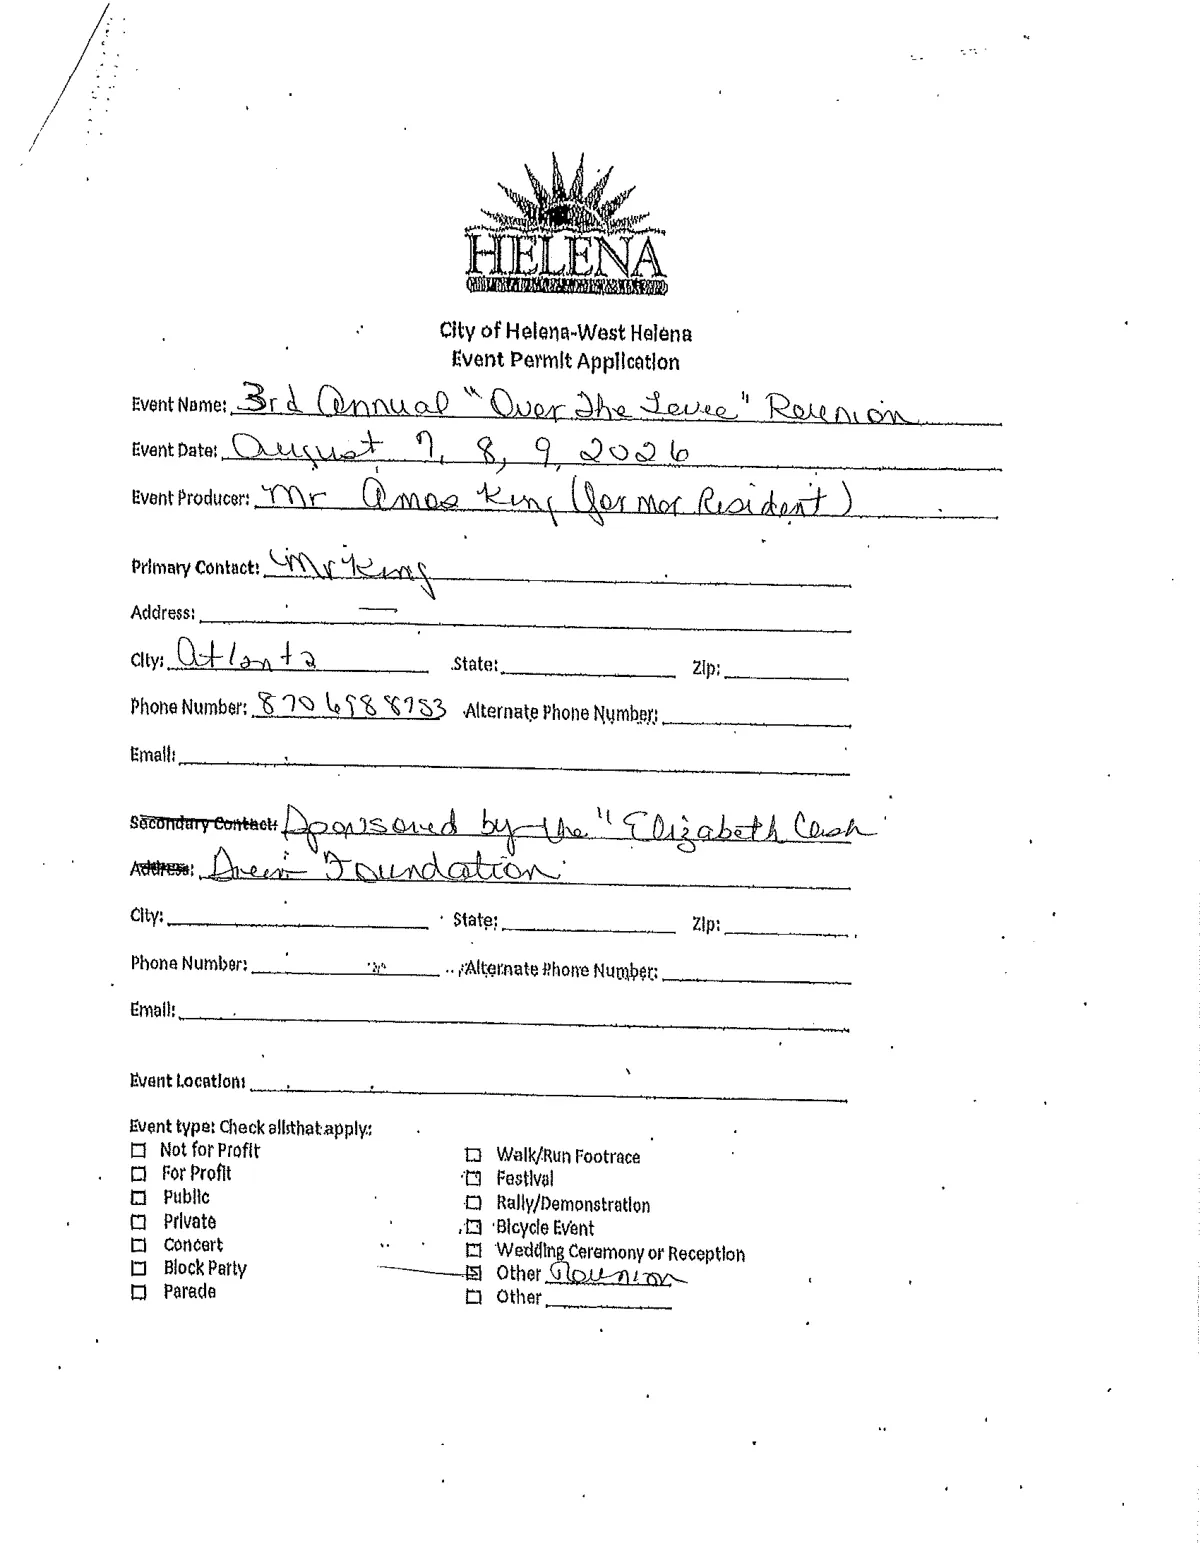 HELENA
City of Helena-West Helena
Event Permit Application
Event Name: 3rd Annual "Over The Levee" Reunion
Event Date: August 7, 8, 9, 2026
Event Producer: Mr Amos King (former Resident)
Primary Contact: Mr King
Address: —
City: Atlanta State: Zip:
Phone Number: Alternate Phone Number:
Email:
Secondary Contact: Sponsored by the "Elizabeth Cash
Address: Foundation
City: State: Zip:
Phone Number: Alternate Phone Number:
Email:
Event Location:
Event type: Check all that apply:
Not for Profit
For Profit
Public
Private
Concert
Block Party
Parade
Walk/Run Footrace
Festival
Rally/Demonstration
Bicycle Event
Wedding Ceremony or Reception
Other Reunion
Other